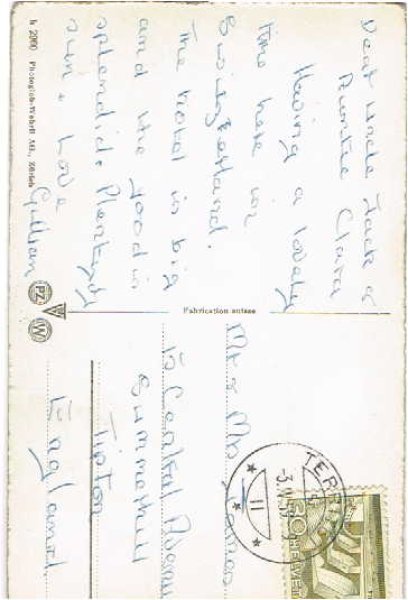 Dear Uncle Jack &
Auntie Clara
Having a lovely
time here in
Switzerland.
The hotel is big
and the food is
splendid. Plenty of
sun. Love
Gillian
h 2900 Photoglob-Wehrli AG., Zürich
PZ
W
Fabrication suisse
Mr & Mrs
15 Central Avenu
Summerhill
Tipton
England.
TERRI
11
HELVETIA